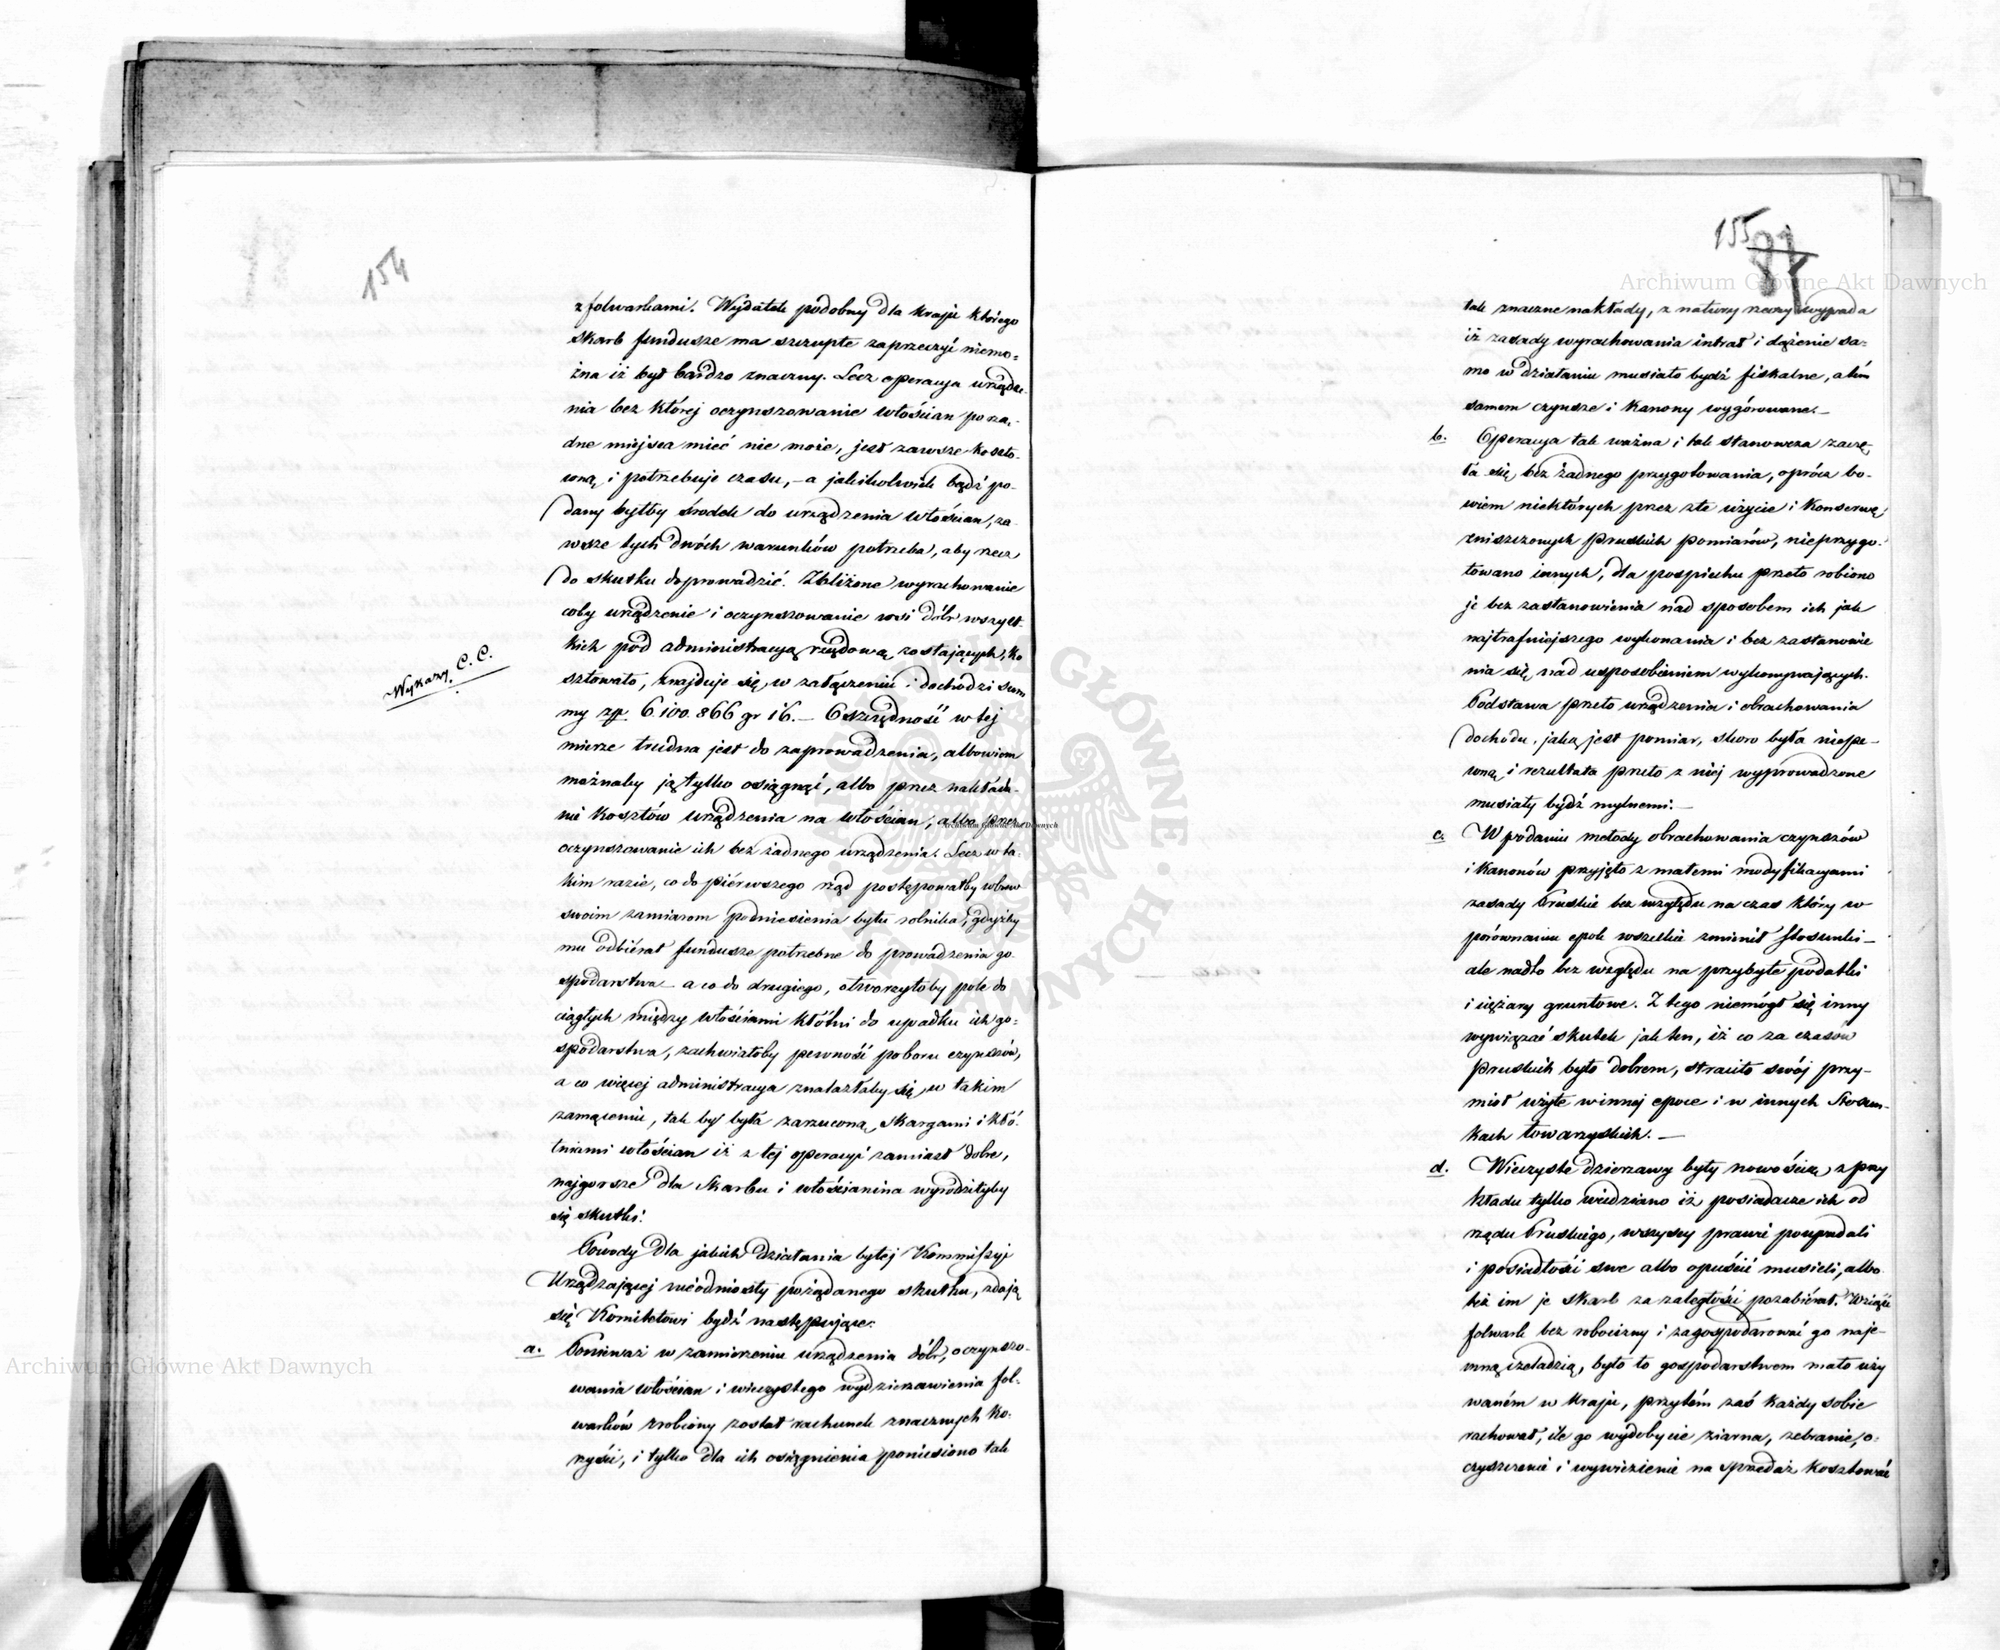 154
z folwarkami. Wydatek podobny dla kraju którego
skarb fundusze ma szczupłe zaprzeczyć niemo-
żna iż był bardzo znaczny. Lecz operacya urządze-
nia bez której oczynszowanie włościan porzą-
dne miejsca mieć nie może, jest zawsze koszto-
wną i potrzebuje czasu, – a jakikolwiek bądź po-
dany byłby środek do urządzenia włościan, za-
wsze tych dwóch warunków potrzeba, aby rzecz
do skutku doprowadzić. Zbliżone wyrachowanie
coby urządzenie i oczynszowanie wsi dóbr wszyst-
kich pod administracyą rządową zostających, ko
sztowało, znajduje się w załączeniu i dochodzi sum
Wykazy C. C.
my zp. 6.100.866 gr 16. – Oszczędność w tej
mierze trudna jest do zaprowadzenia, albowiem
możnaby ją tylko osiągnąć, albo przez nakłada-
nie kosztów urządzenia na włościan, albo przez
oczynszowanie ich bez żadnego urządzenia. Lecz w ta-
kim razie, co do piérwszego rząd postępowałby wbrew
swoim zamiarom podniesienia bytu rolnika, gdyżby
mu odbiérał fundusze potrzebne do prowadzenia go
spodarstwa – a co do drugiego, otworzyłoby pole do
ciągłych między włościami kłótni do upadku ich go-
spodarstwa, zachwiałoby pewność poboru czynszów,
a co więcej administracya znalazłaby się w takim
zamąceniu, tak by była zarzuconą skargami i kłó-
tniami włościan iż z tej operacyi zamiast dobre,
najgorsze dla Skarbu i włościanina wyrodziłyby
się skutki.
Powody dla jakich działania byłej Kommissyi
Urządzającej nieodniosły pożądanego skutku, zdają
się Komitetowi bydź następujące:
a. Ponieważ w zamierzeniu urządzenia dóbr, oczynszo-
wania włościan i wieczystego wydzierzawienia fol-
warków zrobiony został rachunek znacznych ko-
rzyści, i tylko dla ich osiągnienia poniesiono tak
155
87
tak znaczne nakłady, z natury rzeczy wypada
iż zasady wyrachowania intrat i dążenie sa-
mo w działaniu musiało bydź fiskalne, a tém
samem czynsze i kanony wygórowane. –
b. Operacya tak ważna i tak stanowcza zaczę-
ta się bez żadnego przygotowania, oprócz bo-
wiem niektórych przez złe użycie i konserwę
zniszczonych pruskich pomiarów, nieprzygo-
towano innych, dla pospiechu przeto robiono
je bez zastanowienia nad sposobem ich jak
najtrafniejszego wykonania i bez zastanowie
nia się nad usposobieniem wykonywających.
Podstawa przeto urządzenia i obrachowania
dochodu, jaką jest pomiar, skoro była niepe-
wną i rezultata przeto z niéj wyprowadzone
musiały bydź mylnemi. –
c. W podaniu metody obrachowania czynszów
i kanonów przyjęto z małemi modyfikacyami
zasady Pruskie bez względu na czas który w
porównaniu epok wszelkie zmienił stosunki –
ale nadto bez względu na przybyłe podatki
i ciężary gruntowe. Z tego niemógł się inny
wywiązać skutek jak ten, iż co za czasów
pruskich było dobrem, straciło swój przy-
miot użyte w innej epoce i w innych stosun-
kach towarzyskich. –
d. Wieczyste dzierzawy były nowością, z przy
kładu tylko wiedziano iż posiadacze ich od
rządu Pruskiego, wszyscy prawie poupadali
i posiadłości swe albo opuścić musieli, albo
też im je skarb za zaległości pozabiérał. Wziąść
folwark bez robocizny i zagospodarować go naje-
mną czeladzią, było to gospodarstwem mało uży
waném w kraju, przytém zaś każdy sobie
rachował, ile go wydobycie ziarna, zebranie, o-
czyszczenie i wywiezienie na sprzedaż kosztować
Archiwum Główne Akt Dawnych
Archiwum Główne Akt Dawnych
Archiwum Główne Akt Dawnych